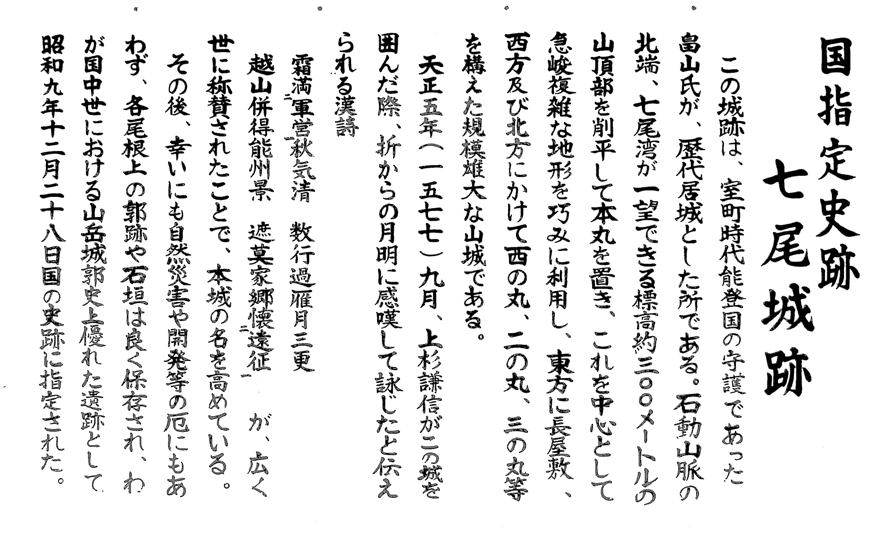 国指定史跡
七尾城跡
この城跡は、室町時代能登国の守護であった
畠山氏が、歴代居城とした所である。石動山脈の
北端、七尾湾が一望できる標高約三〇〇メートルの
山頂部を削平して本丸を置き、これを中心として
急峻複雑な地形を巧みに利用し、東方に長屋敷、
西方及び北方にかけて西の丸、二の丸、三の丸等
を構えた規模雄大な山城である。
天正五年(一五七七)九月、上杉謙信がこの城を
囲んだ際、折からの月明に感嘆して詠じたと伝え
られる漢詩
霜満二軍営一秋気清 数行過雁月三更
越山併得能州景 遮莫家郷懐二遠征一 が、広く
世に称賛されたことで、本城の名を高めている。
その後、幸いにも自然災害や開発等の厄にもあ
わず、各尾根上の郭跡や石垣は良く保存され、わ
が国中世における山岳城郭史上優れた遺跡として
昭和九年十二月二十八日国の史跡に指定された。